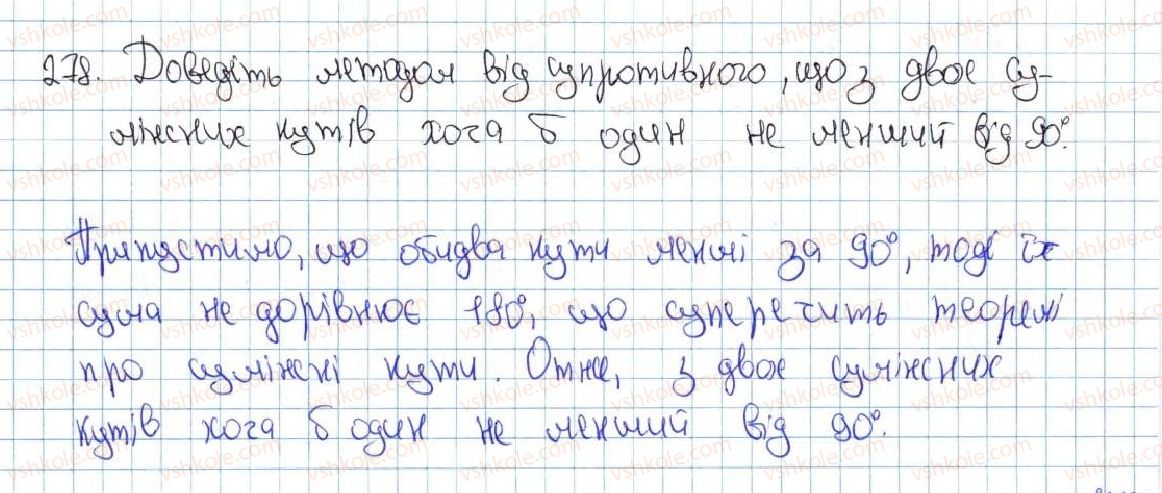 278. Доведіть методом від супротивного, що з двох су-
міжних кутів хоча б один не менший від 90°.
Припустимо, що обидва кути менші за 90°, тоді їх
сума не дорівнює 180°, що суперечить теоремі
про суміжні кути. Отже, з двох суміжних
кутів хоча б один не менший від 90°.